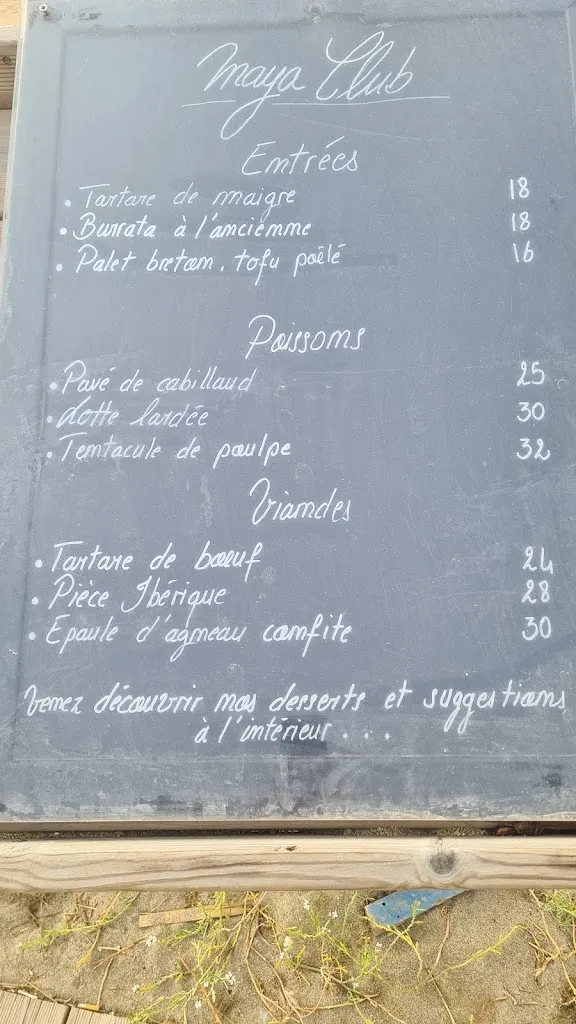 Maya Club
Entrées
• Tartare de maigre 18
• Burrata à l'ancienne 18
• Palet breton, tofu poêlé 16
Poissons
• Pavé de cabillaud 25
• Lotte lardée 30
• Tentacule de poulpe 32
Viandes
• Tartare de bœuf 24
• Pièce Ibérique 28
• Epaule d'agneau confite 30
Venez découvrir nos desserts et suggestions
à l'intérieur...